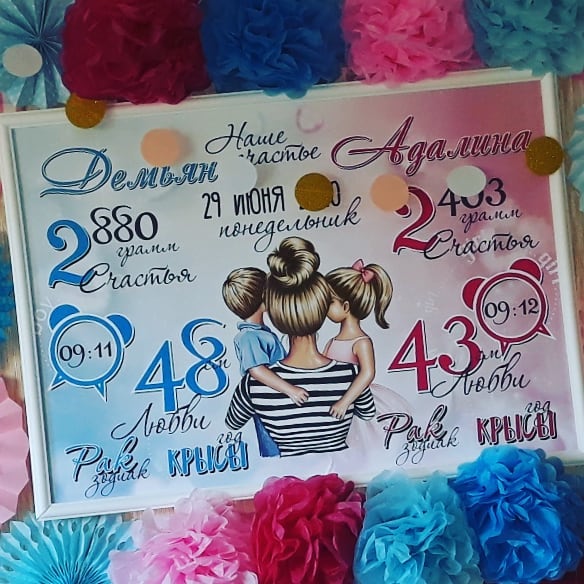 Демьян
Наше
счастье
Адалина
29 июня
понедельник
2880
грамм
Счастья
2403
грамм
Счастья
09:11
48
см
Любви
09:12
43
см
Любви
Рак
зодиак
год
крысы
Рак
зодиак
год
крысы
boy
girl